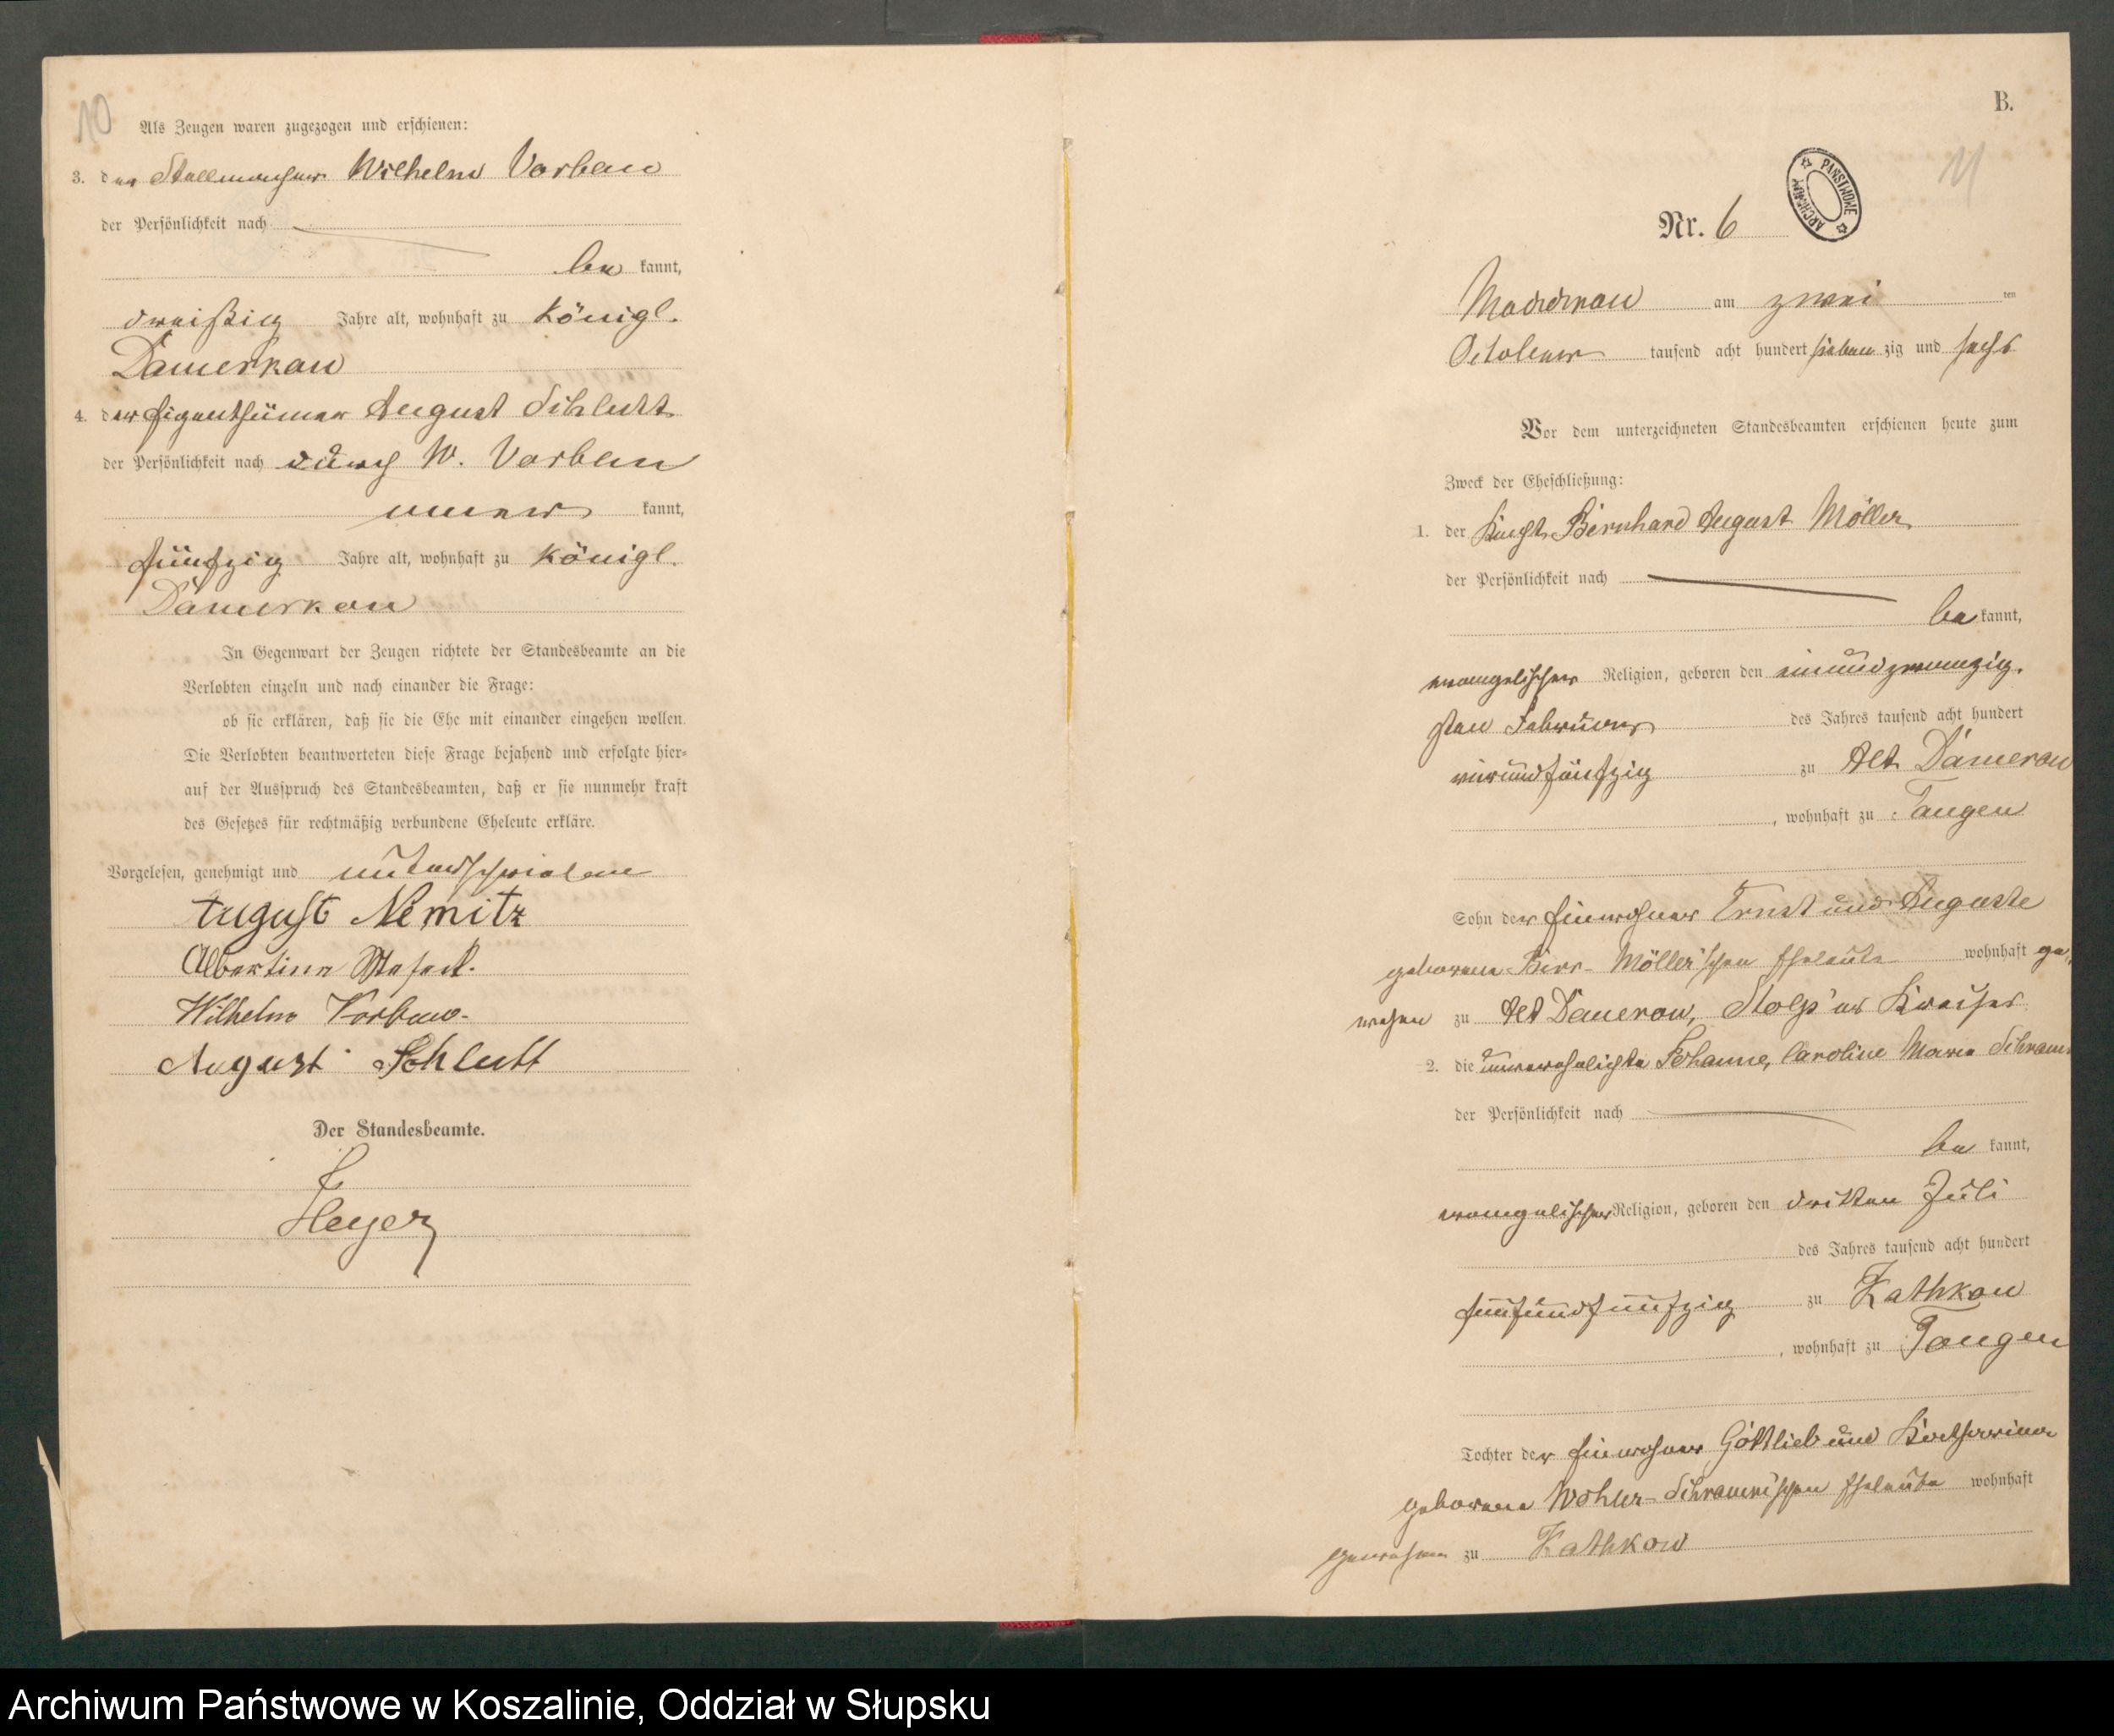 10
Als Zeugen waren zugezogen und erschienen:
3. der Stellmacher Wilhelm Vorbau
der Persönlichkeit nach
be kannt,
dreißig Jahre alt, wohnhaft zu Königl.
Damerkau
4. der Eigenthümer August Schlutt
der Persönlichkeit nach durch W. Vorbau
aner kannt,
fünfzig Jahre alt, wohnhaft zu Königl.
Damerkau
In Gegenwart der Zeugen richtete der Standesbeamte an die
Verlobten einzeln und nach einander die Frage:
ob sie erklären, daß sie die Ehe mit einander eingehen wollen.
Die Verlobten beantworteten diese Frage bejahend und erfolgte hier-
auf der Ausspruch des Standesbeamten, daß er sie nunmehr kraft
des Gesetzes für rechtmäßig verbundene Eheleute erkläre.
Vorgelesen, genehmigt und unterschrieben
August Nemitz
Albertine
Wilhelm Vorbau
August Schlutt
Der Standesbeamte.
Heyer
B.
11
ARCHIWUM PAŃSTWOWE
Nr. 6
am zwei ten
October tausend acht hundert sieben zig und sechs
Vor dem unterzeichneten Standesbeamten erschienen heute zum
Zweck der Eheschließung:
1. der Knecht Bernhard August Möller
der Persönlichkeit nach
be kannt,
evangelischer Religion, geboren den einundzwanzig-
sten Februar des Jahres tausend acht hundert
vierundfünfzig zu Alt Damerow
, wohnhaft zu Tangen
Sohn der Einwohner Ernst und Auguste
geborene Möller'schen Eheleute wohnhaft ge-
wesen zu Alt Damerow, Stolp'er Kreises
2. die unverehelichte Johanne, Caroline Maria
der Persönlichkeit nach
be kannt,
evangelischer Religion, geboren den dritten Juli
des Jahres tausend acht hundert
fünfundfünfzig zu Kathkow
, wohnhaft zu Tangen
Tochter der Einwohner Gottlieb und
geborene Eheleute wohnhaft
gewesen zu Kathkow
Archiwum Państwowe w Koszalinie, Oddział w Słupsku